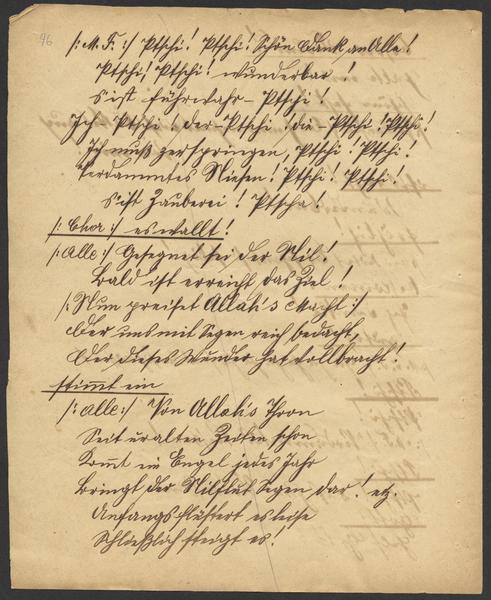 96
/: M. F. :/ Ptschi! Ptschi! Schön Dank, an Alle!
Ptschi! Ptschi! wunderbar!
S'ist fürwahr - Ptschi!
Ich - Ptschi! der - Ptschi! die Ptschi! Ptschi!
Ich muß zerspringen, Ptschi! Ptschi!
Verdammtes Niesen! Ptschi! Ptschi!
S'ist Zauberei! Ptscha!
/: Chor :/ es wallt!
/: Alle :/ Gesegnet sei, der Nil!
Bald ist erreicht das Ziel!
/: Nun preiset Allah's Macht :/
Der uns mit Segen reich bedacht,
Der dieses Wunder hat vollbracht!
stimmt ein
/: Alle :/ Von Allah's Thron
Seit uralten Zeiten schon
Kommt ein Engel jedes Jahr
Bringt der Nilflut Segen dar! etz.
Anfangs flüstert es leise
Schließlich steigt es!